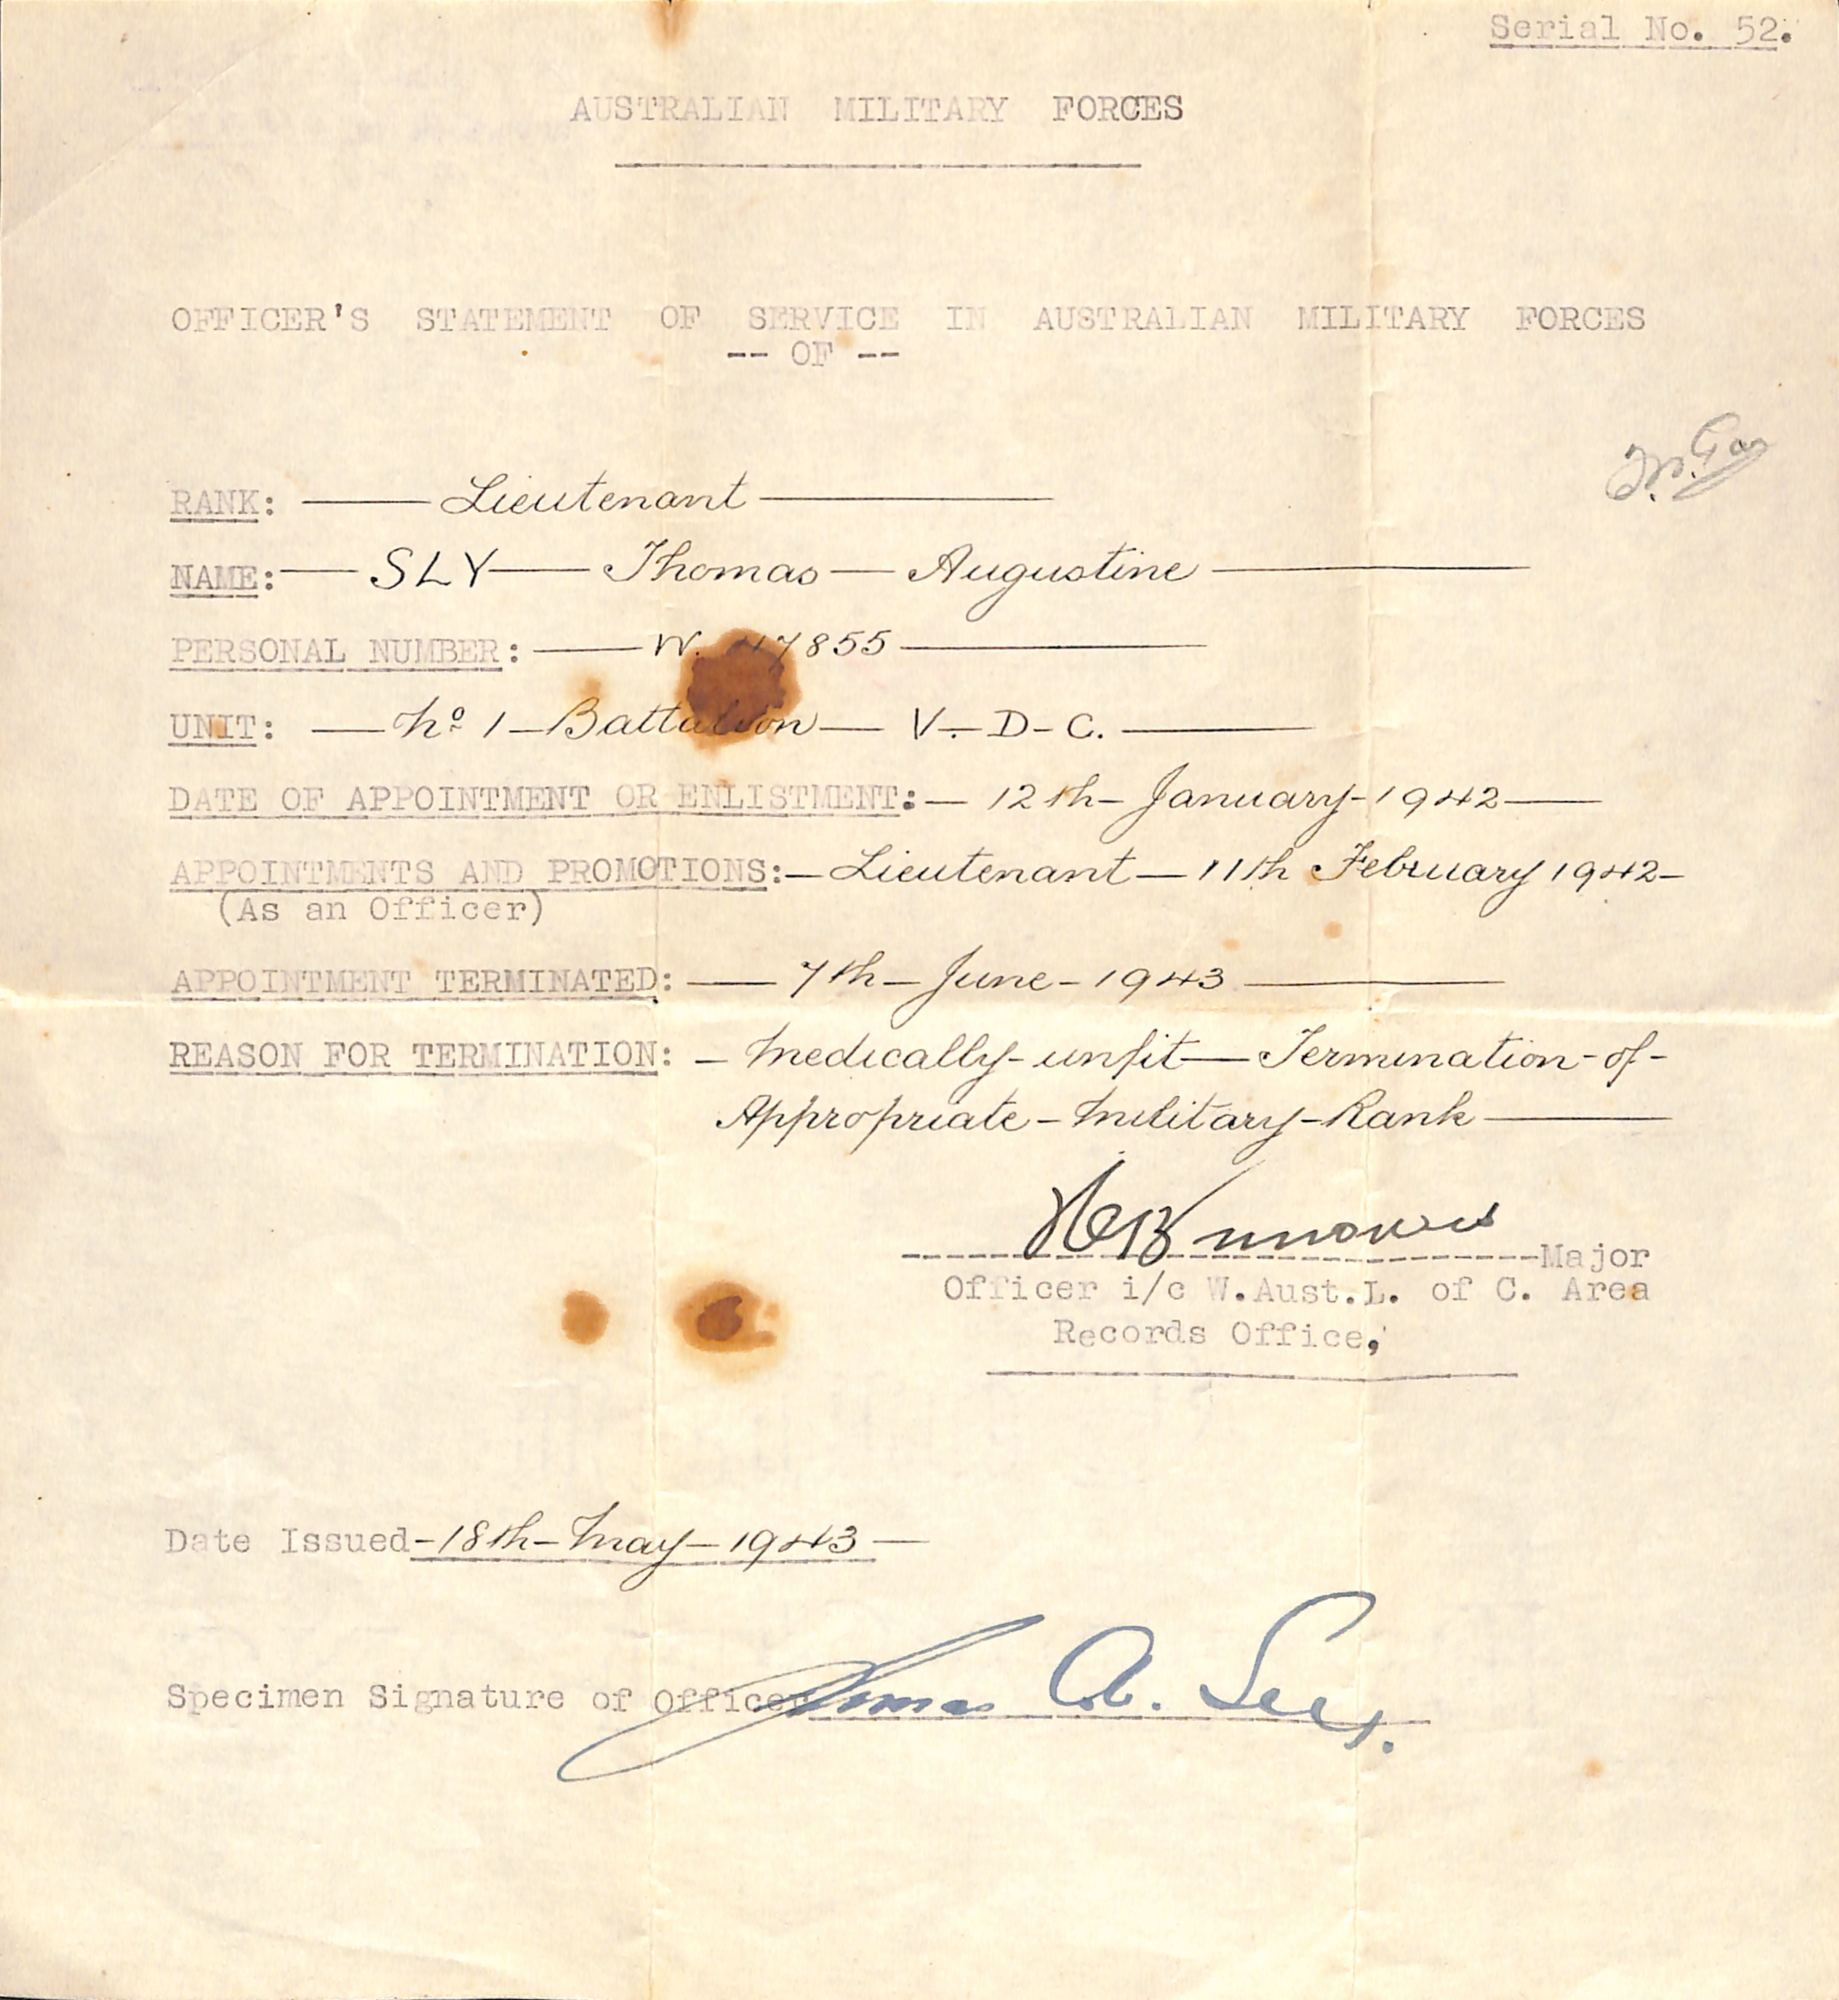 Serial No. 52.
AUSTRALIAN MILITARY FORCES
OFFICER'S STATEMENT OF SERVICE IN AUSTRALIAN MILITARY FORCES
-- OF --
RANK: — Lieutenant —
NAME: — SLY — Thomas — Augustine —
PERSONAL NUMBER: — W. 7855 —
UNIT: — No 1 — Battalion — V.— D - C. —
DATE OF APPOINTMENT OR ENLISTMENT: — 12th - January - 1942 —
APPOINTMENTS AND PROMOTIONS: — Lieutenant — 11th February 1942 -
(As an Officer)
APPOINTMENT TERMINATED: — 7th - June - 1943 —
REASON FOR TERMINATION: - Medically - unfit — Termination - of -
Appropriate - Military - Rank —
Major
Officer i/c W.Aust.L. of C. Area
Records Office,
Date Issued - 18th - May - 1943 —
Specimen Signature of Officer Thomas A. Sly.